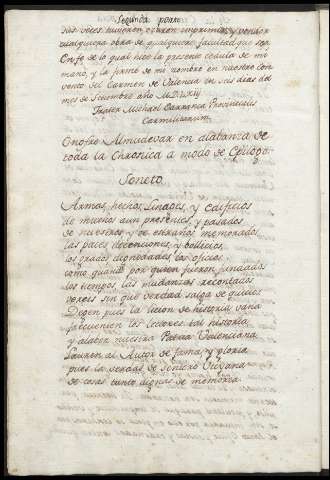 Segunda parte
sus veces hizieren, ozaren imprimir, y vender
qualquiera obra de qualquiera facultad que sea
En fe de lo qual hize la presente cedula de mi
mano, y la firmè de mi nombre en nuestro con
vento del Carmen de Valencia en seis dias del
mes de año MDLXIII
Frater Michael Carranza Provincialis
Carmelitarum.
Onofre Almudevar en alabanza de
toda la Chronica a modo de Epilogo.
Soneto.
Armas, hechos, Linages, y edificios
de muchos aun presentes, y pasados
de nuestros, y de estraños memorados
las paces devociones, y bollicios,
los grados dignedades, los oficios,
como, quando, por quien fueron fundados
los tiempos, las mudanzas recontados
vereis sin que verdad salga de quicios.
Digan pues la licion de historia vana
frequenten los lectores tal historia,
y alabe nuestra Patria Valenciana.
Lauren al Autor de fama, y gloria
pues la verdad de
de cosas tanto dignas de memoria.